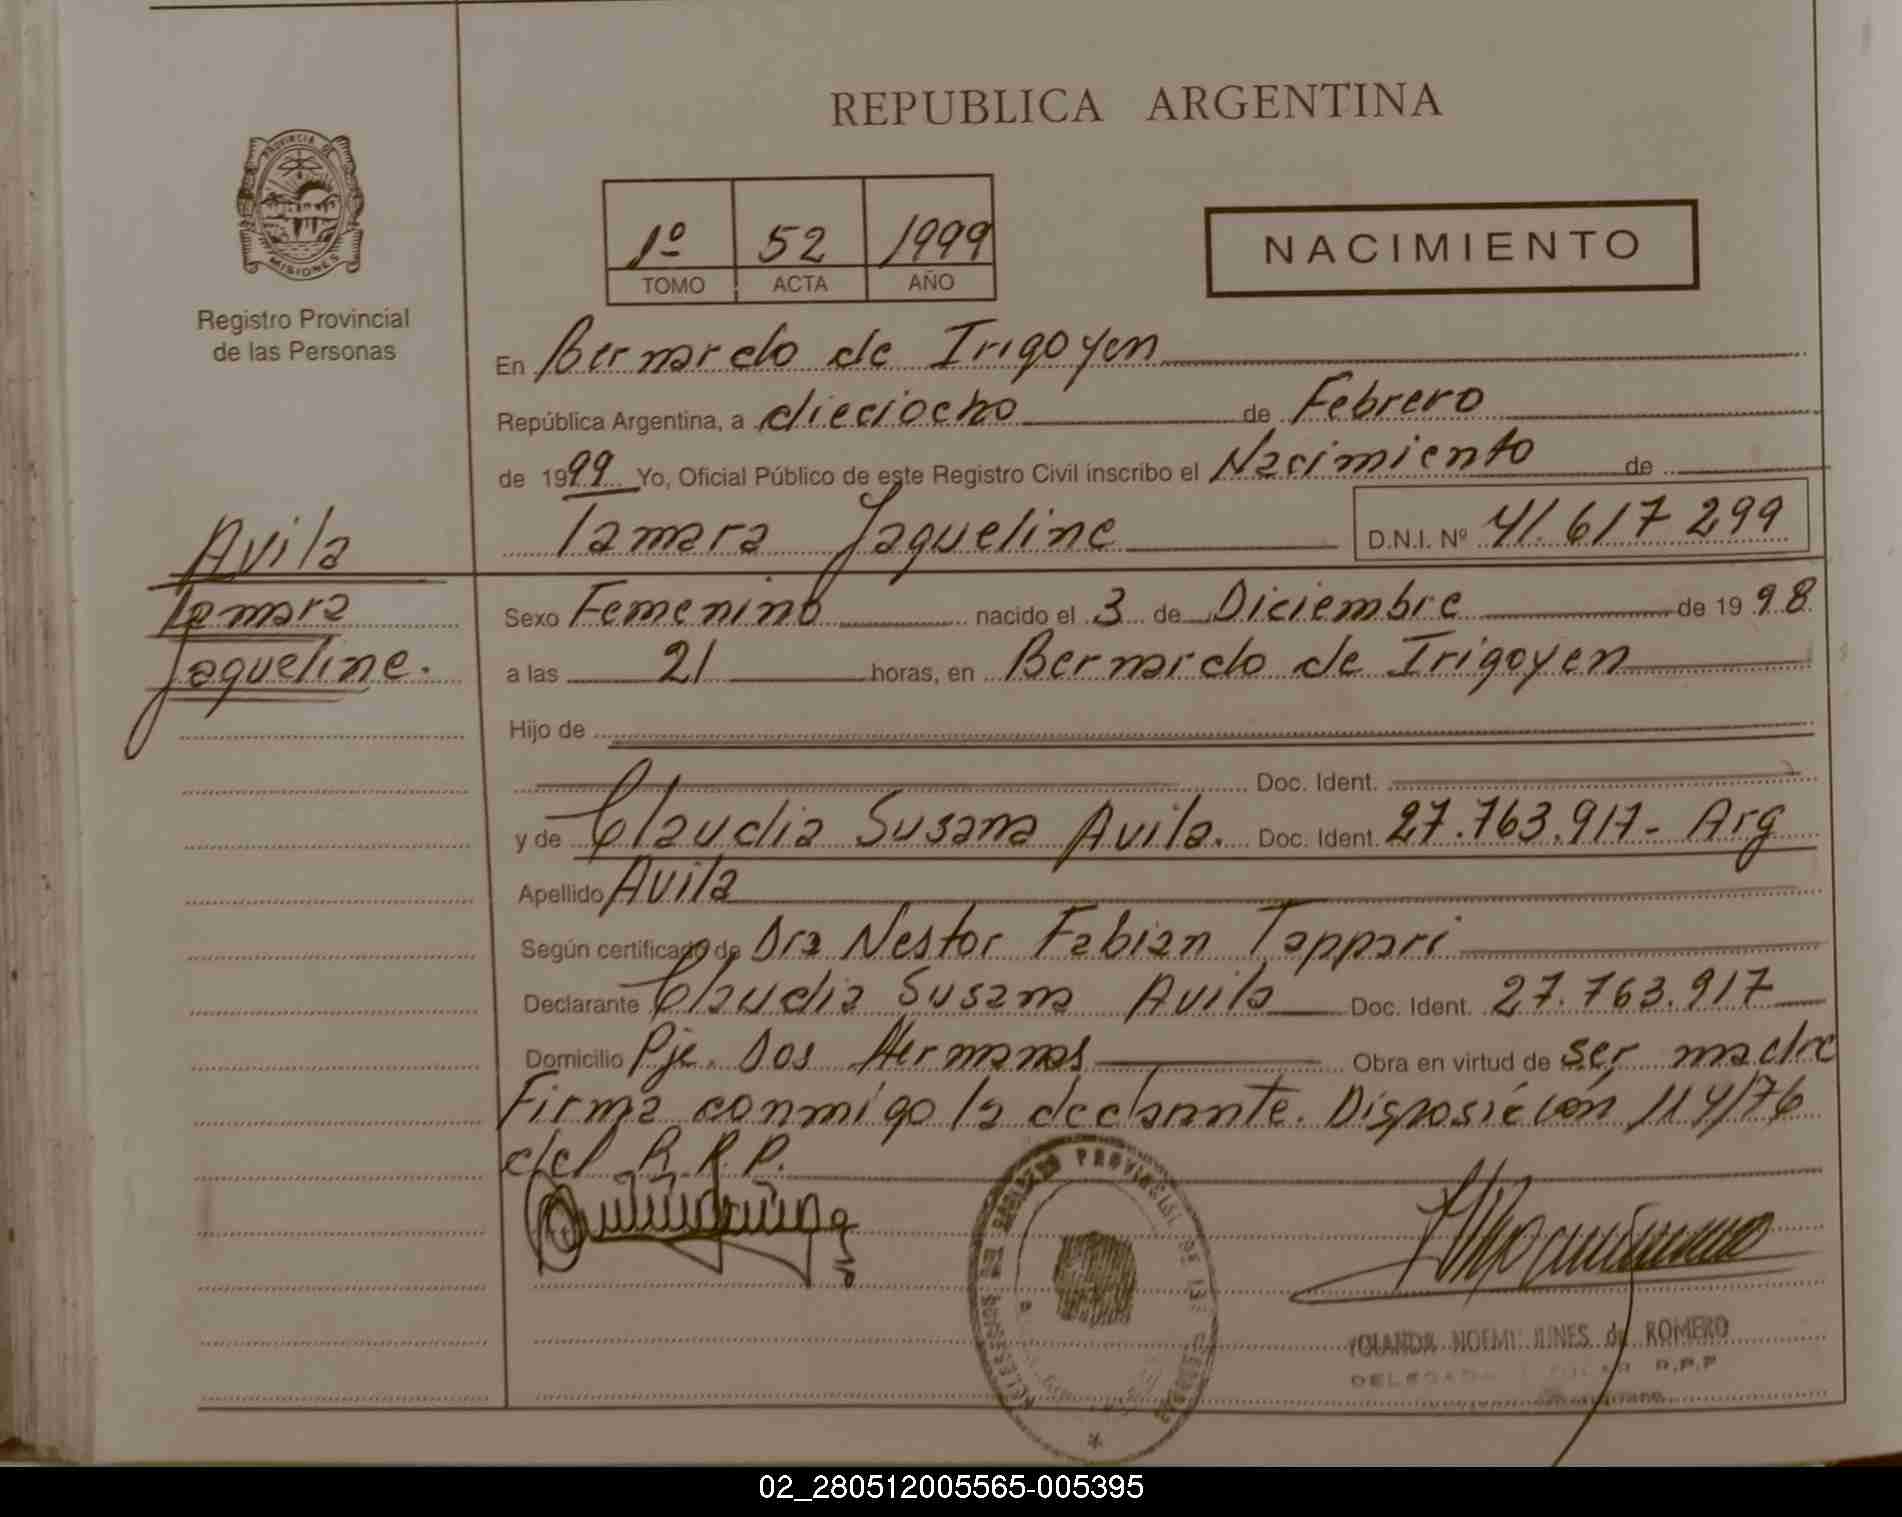 REPUBLICA ARGENTINA
PROVINCIA DE
MISIONES
Registro Provincial
de las Personas
1º 52 1999
TOMO ACTA AÑO
NACIMIENTO
En Bernardo de Irigoyen
República Argentina, a dieciocho de Febrero
de 1999 Yo, Oficial Público de este Registro Civil inscribo el Nacimiento de
Tamara Jaqueline D.N.I. Nº 41.617 299
Avila
Tamara
Jaqueline.
Sexo Femenino nacido el 3 de Diciembre de 19 98
a las 21 horas, en Bernardo de Irigoyen
Hijo de
Doc. Ident.
y de Claudia Susana Avila. Doc. Ident. 27.763.917- Arg
Apellido Avila
Según certificado de Dra Nestor Fabian Tappari
Declarante Claudia Susana Avila Doc. Ident. 27.763.917
Domicilio Pje. Dos Hermanas Obra en virtud de ser madre
Firma conmigo la declarante. Disposición 114/76
del R.R.P.
REGISTRO PROVINCIAL DE LAS
YOLANDA NOEMI de ROMERO
DELEGADA R.P.P
02_280512005565-005395